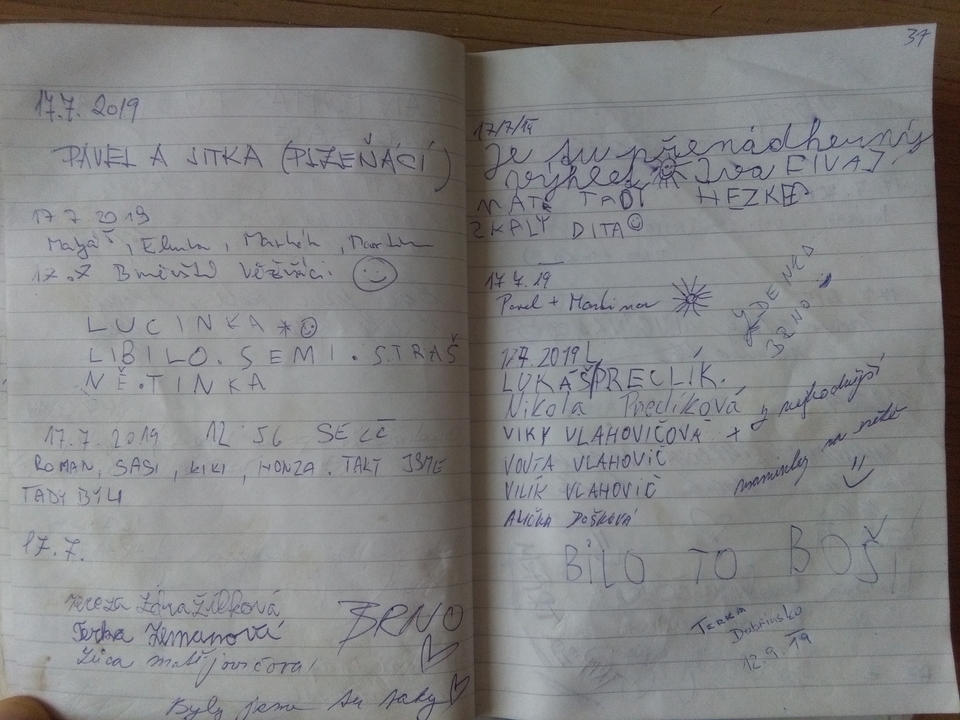 17.7. 2019
PAVEL A JITKA (PLZEŇÁCÍ)
17 7 2019
Matyáš, Elinka, Markét, Martin
17.7 Brněnští Věžváci
LUCINKA *
LIBILO. SEMI. STRAŠ
NĚ. TINKA
17.7. 2019 12 56 SELČ
ROMAN, SASI, KIKI, HONZA. TAKÝ JSME
TADY BYLI
17.7.
Tereza Lára Žílková
Terka Zemanová
Zuca matějovičová!
BRNO
Byly jsme tu taky
37
17/7/19
Je tu přenádherný
výhled Iva EIVA
MÁTE TADY HEZKÉ
ZKALY DITA
17 7. 19
Pavel + Martina
ZDENKO
BRNO
17.7. 2019
LUKÁŠ PRECLÍK.
Nikola Preclíková
VIKY VLAHOVIČOVÁ +
VOJTA VLAHOVIČ
VILÍK VLAHOVIČ
z nejhodnější
maminky na světě
BÍLO TO BOŠ
Dobřínsko
12.9 19